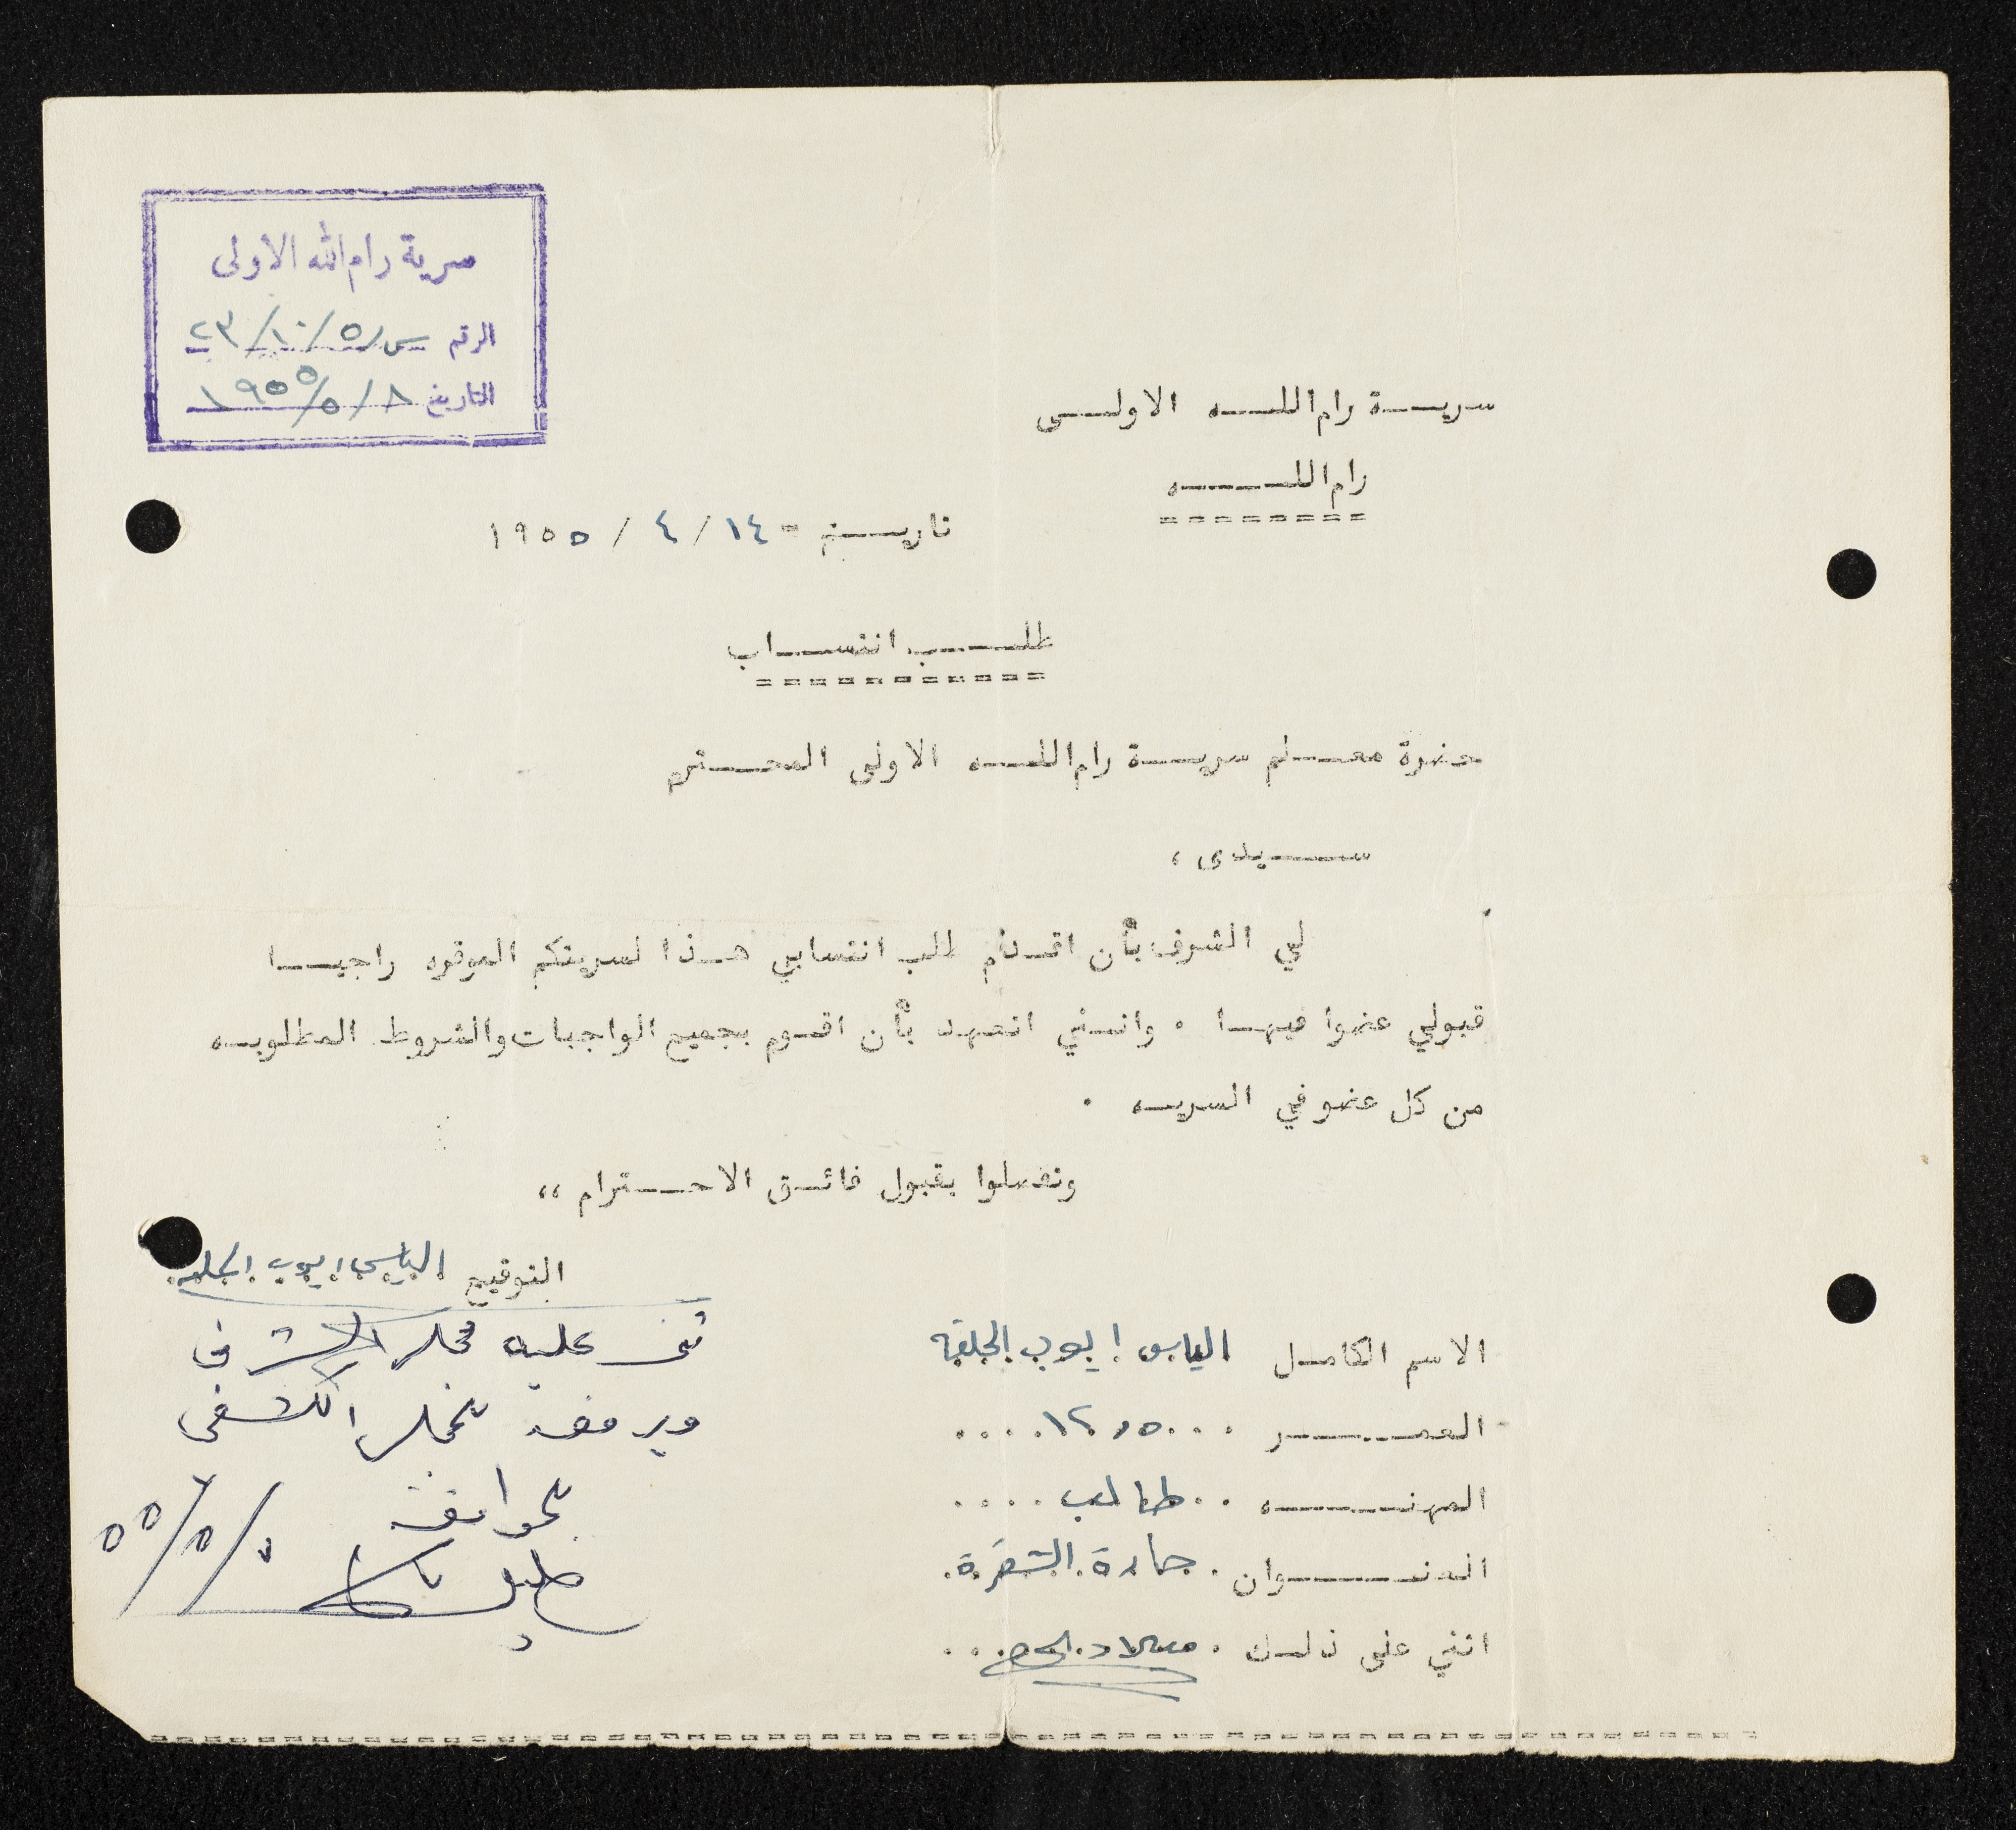 سرية رام الله الاولى
الرقم س/٥/١٠/٢٣
التاريخ ٨/٥/١٩٥٥
سريـة رام اللـه الاولـى
رام اللـه
تاريـخ - ١٤/٤/١٩٥٥
طلـب انتسـاب
حضرة معـلم سريـة رام اللـه الاولى المحـترم
سـيدى ،
لي الشرف بأن اقدم طلب انتسابي هـذا لسريتكم الموقره راجيـا
قبولي عضوا فيهـا . وانـني اتعهد بأن اقـوم بجميع الواجبات والشروط المطلوبـه
من كل عضو في السريـه .
وتفضلوا بقبول فائـق الاحـترام ،،
التوقيع الياس ايوب الجلده
الاسم الكامـل الياس ايوب الجلده
العمـر ...١٢,٥....
المهنـه ..طالب....
العنـوان .حارة الشقرة.
اثني على ذلـك .
عليه مجلس الشرف
مجلس الكشفي
بموافقة
٥٥/٥/